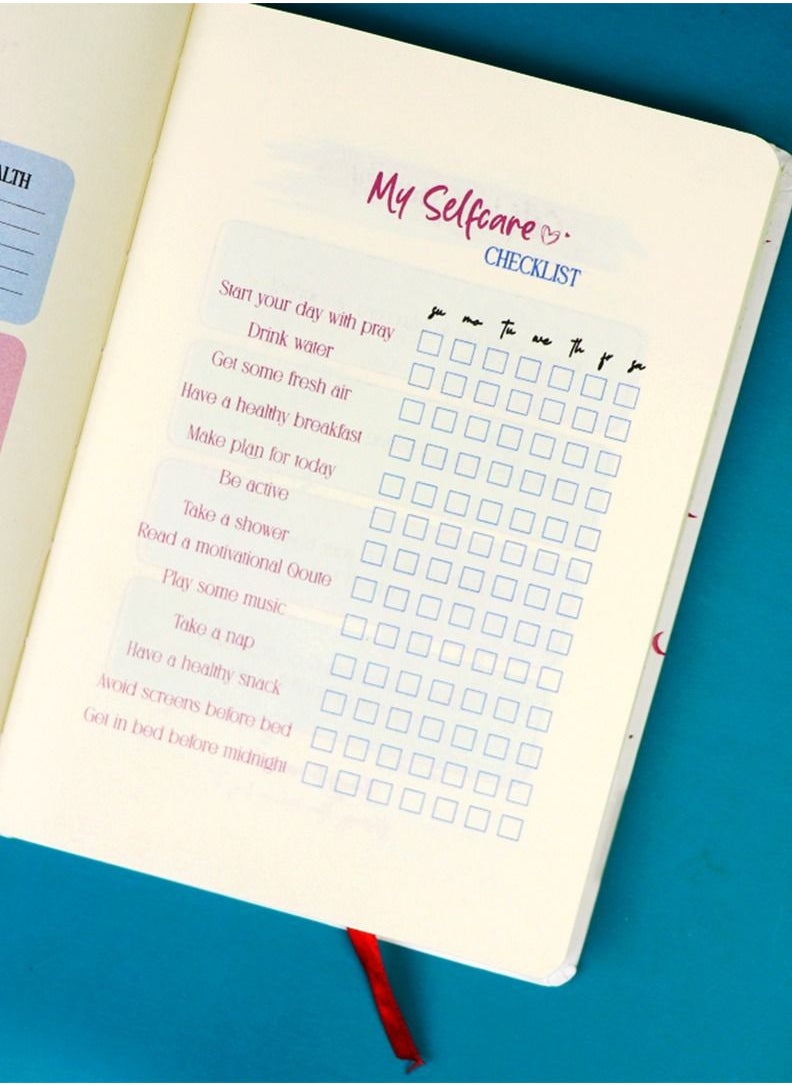 ALTH
My Selfcare
CHECKLIST
su mo tu we th fr sa
Start your day with pray
Drink water
Get some fresh air
Have a healthy breakfast
Make plan for today
Be active
Take a shower
Read a motivational Qoute
Play some music
Take a nap
Have a healthy snack
Avoid screens before bed
Get in bed before midnight